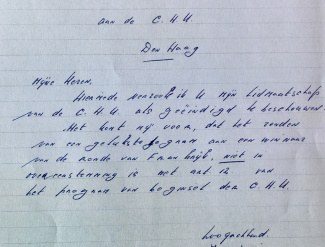 aan de C.H.U.
Den Haag
Mijne Heren,
Hiermede verzoek ik U mijn lidmaatschap
van de C.H.U. als geëindigd te beschouwen.
Het komt mij voor, dat het zenden
van een gelukstelegram aan een winnaar
van de ronde van Frankrijk, niet in
overeenstemming is met art 12 van
het program van beginsel der C.H.U.
Hoogachtend.